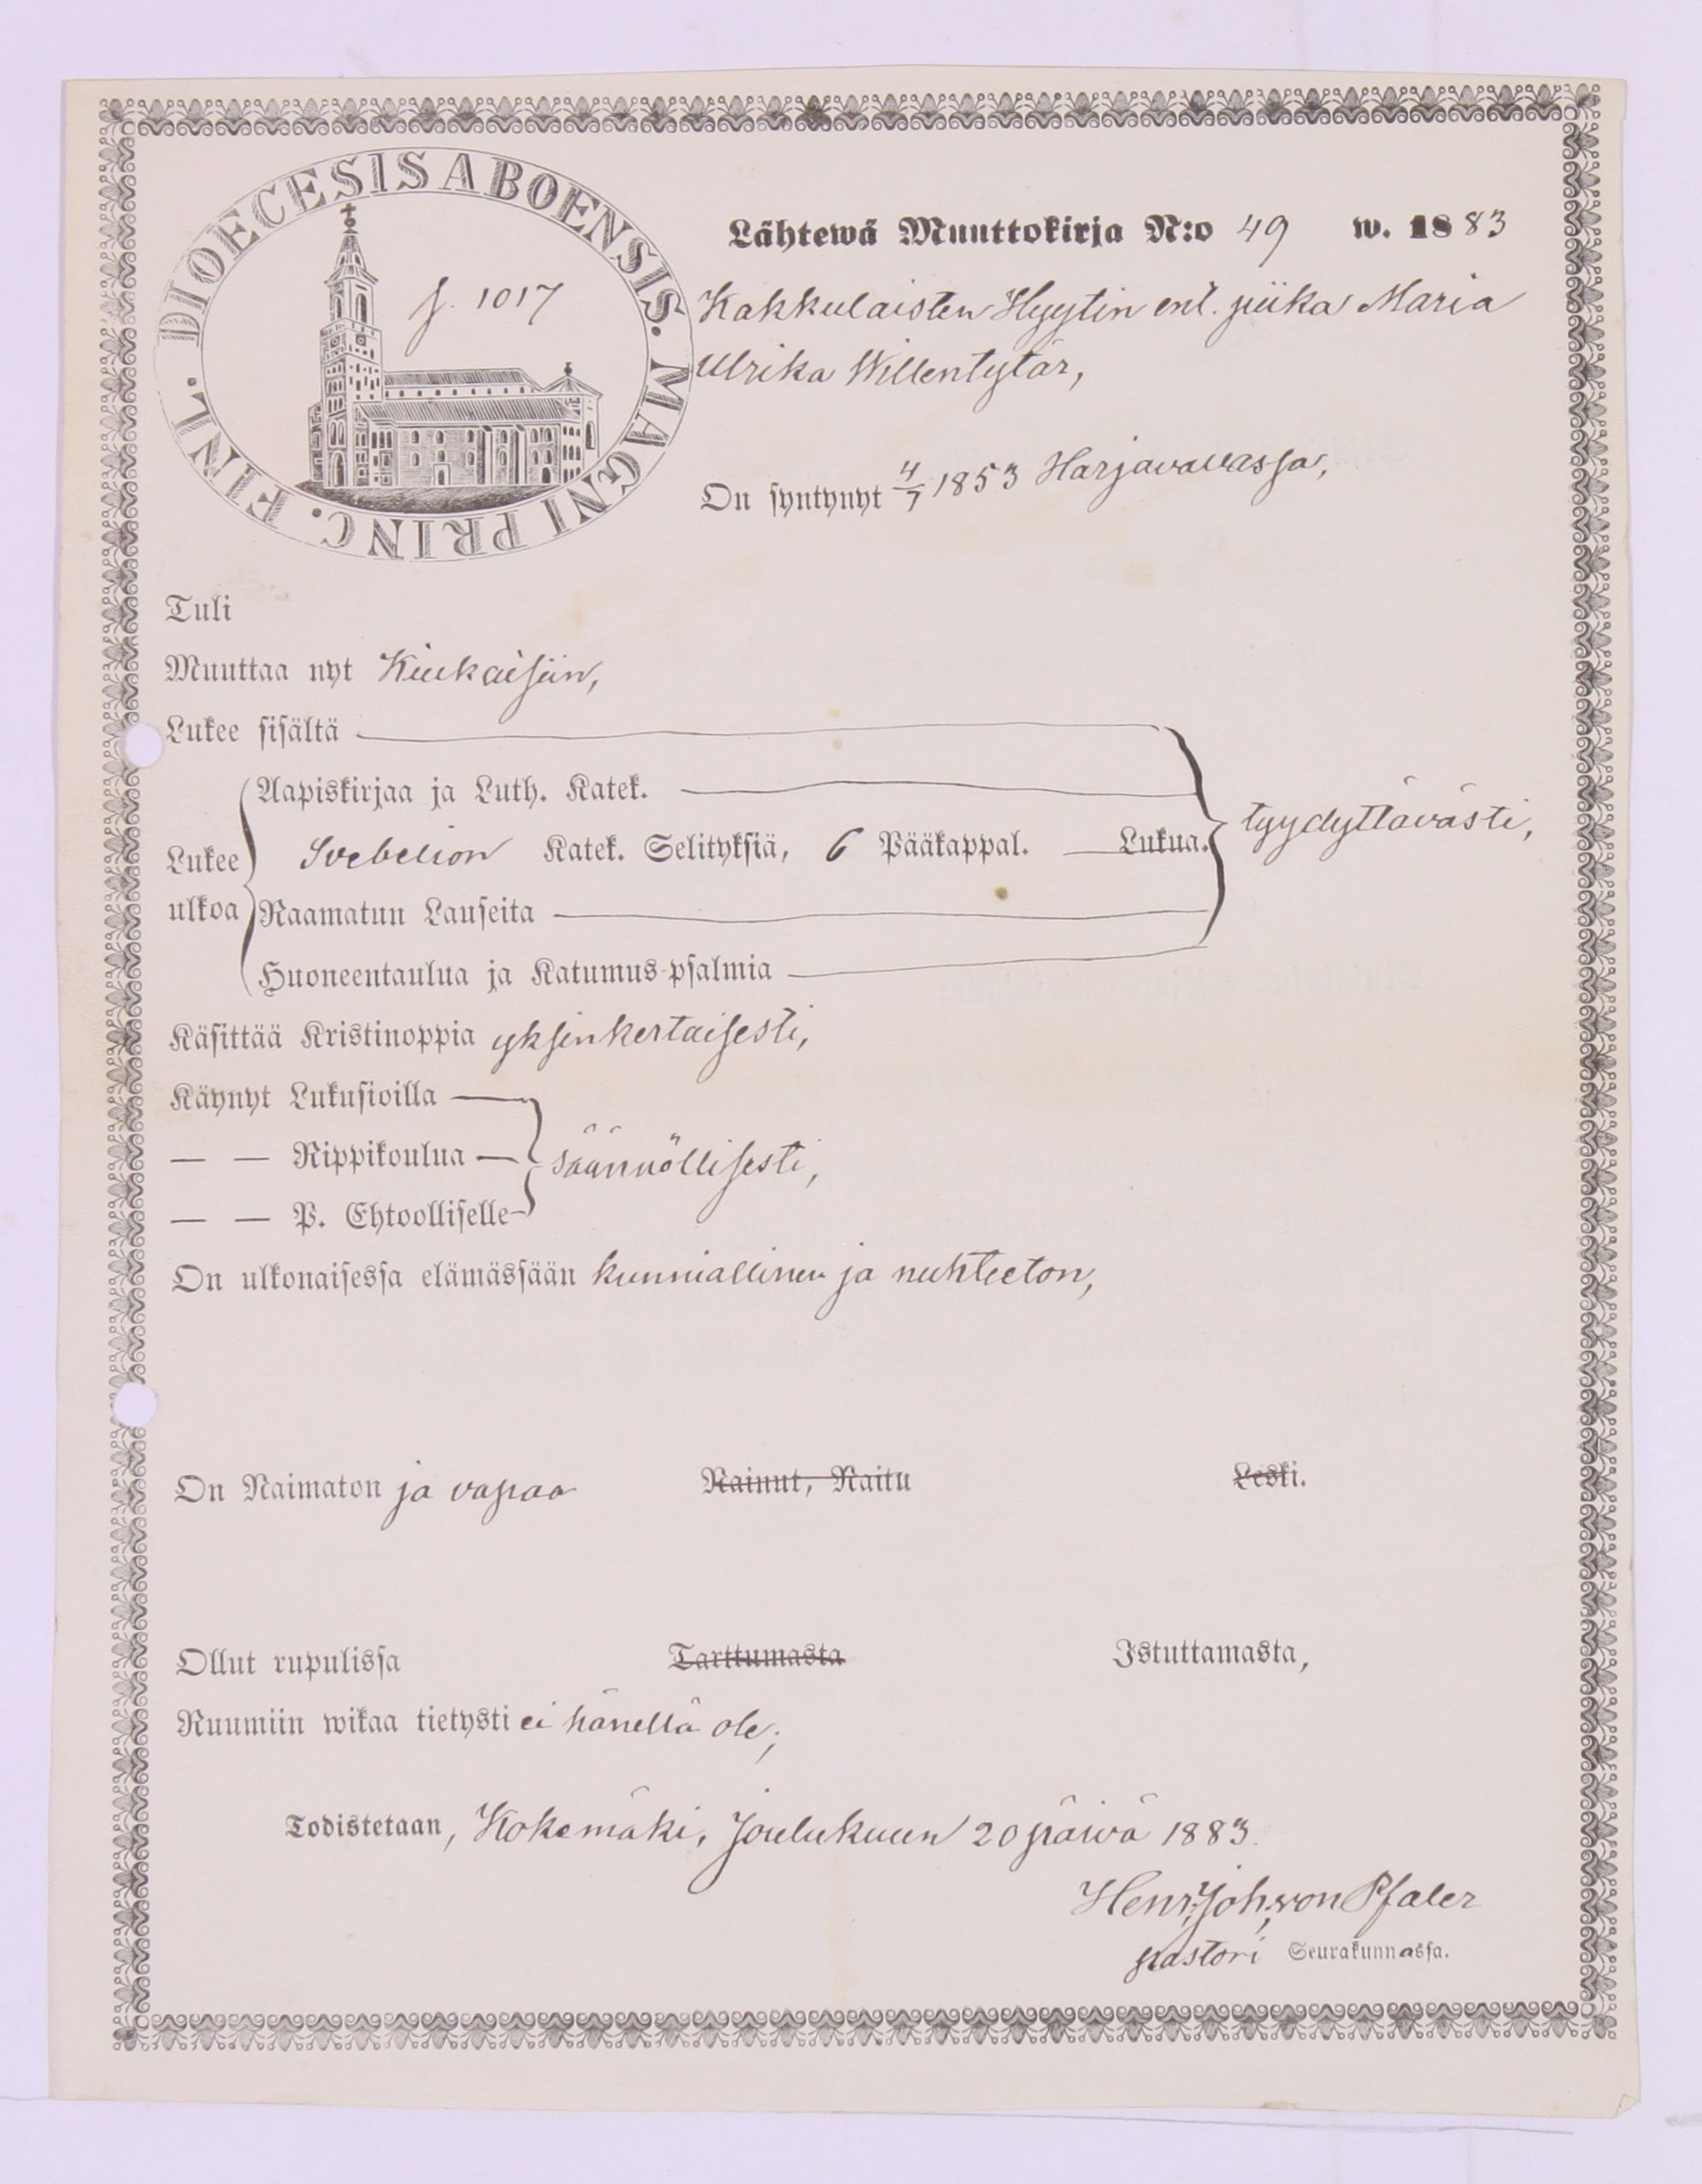 DIOECESIS ABOENSIS. MAGNI PRINC. FINL.
f. 1017
Lähtewä Muuttokirja N:o 49 w. 1883
Kakkulaisten Hyytin ent. piika Maria
Ulrika Willentytär,
On syntynyt 4/7 1853 Harjavallassa,
Tuli
Muuttaa nyt Kiukaisiin,
Lukee sisältä
Lukee ulkoa
Aapiskirjaa ja Luth. Katek.
Svebelion Katek. Selityksiä, 6 Pääkappal. Lukua.
tyydyttävästi,
Raamatun Lauseita
Huoneentaulua ja Katumus-psalmia
Käsittää Kristinoppia yksinkertaisesti,
Käynyt Lukusioilla
— — Rippikoulua — säännöllisesti,
— — P. Ehtoolliselle
On ulkonaisessa elämässään kunniallinen ja nuhteeton,
On Naimaton ja vapaa Nainut, Naitu Leski.
Ollut rupulissa Tarttumasta Istuttamasta,
Ruumiin wikaa tietysti ei hänellä ole;
Todistetaan, Kokemäki, Joulukuun 20 päivä 1883.
Henr. Joh. von Pfaler
pastori Seurakunnassa.